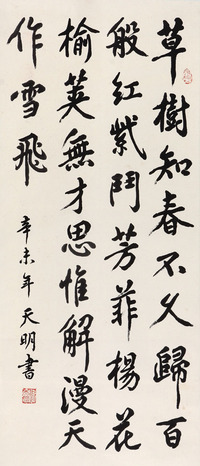 草樹知春不久歸百
般紅紫鬥芳菲楊花
榆莢無才思惟解漫天
作雪飛
辛未年天明書